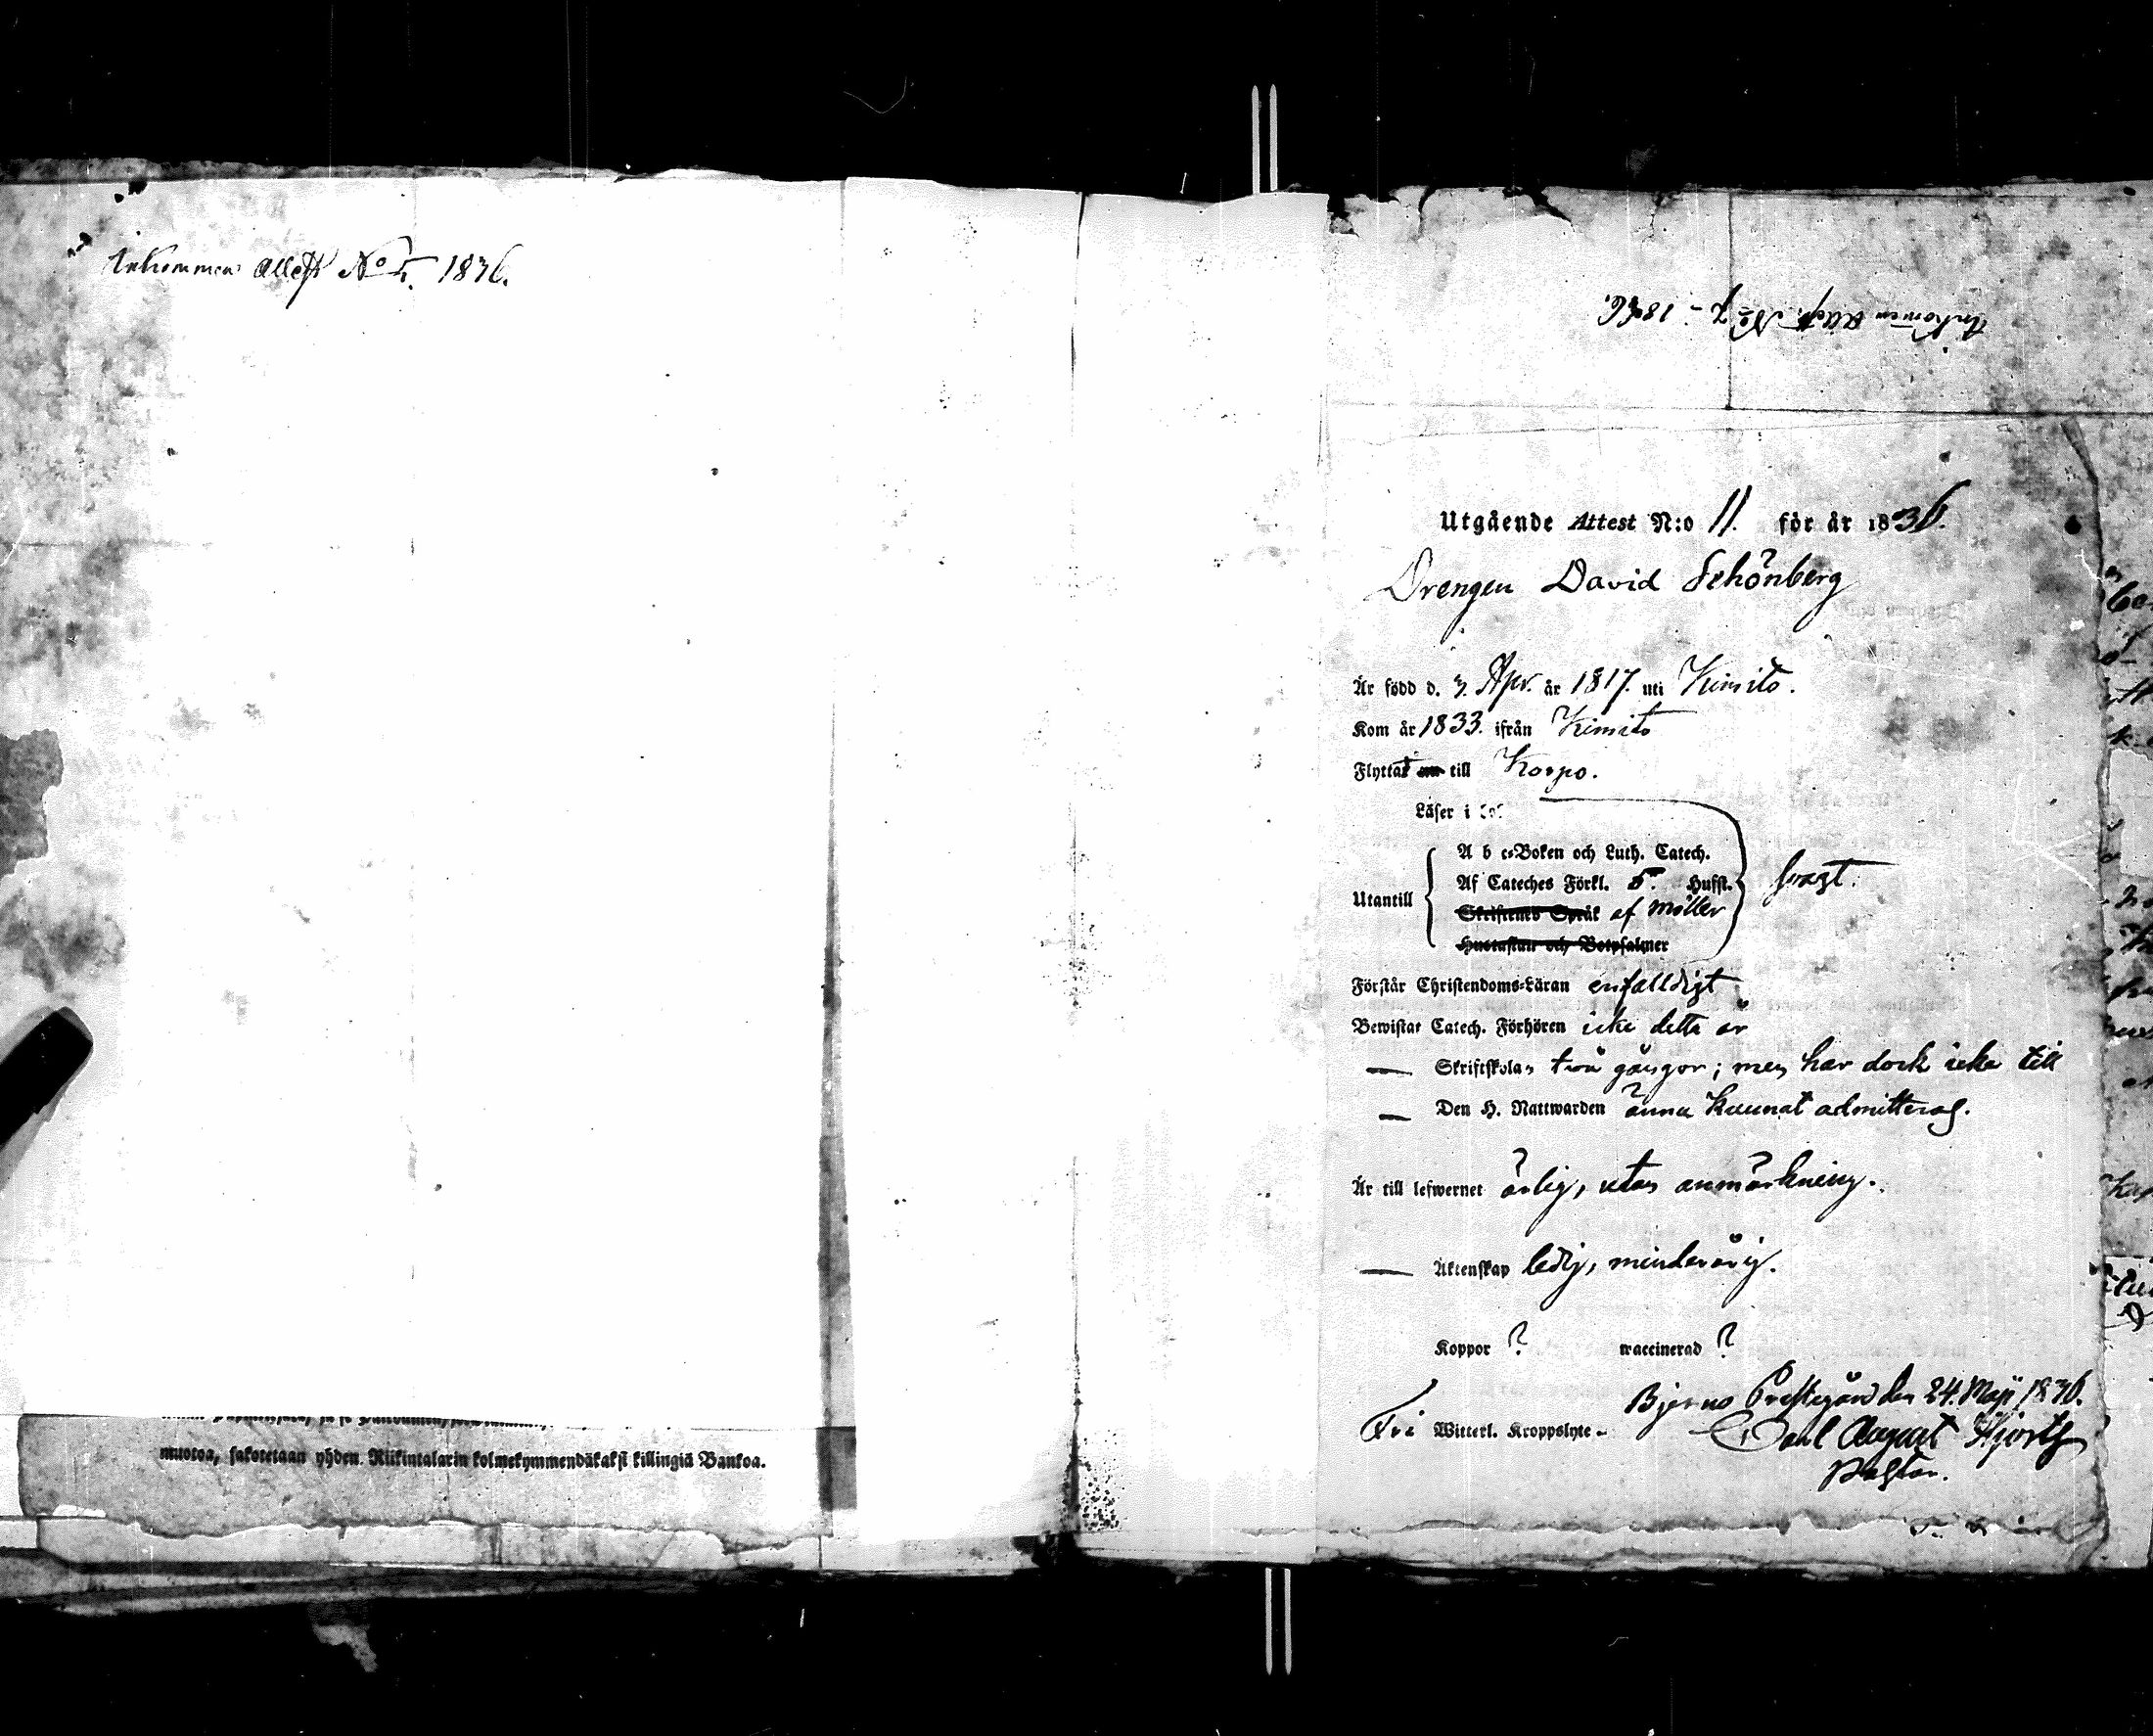 Ankommen Attest No 5. 1836.
muotoa, sakotetaan yhden Riikintalarin kolmekymmendäkaksi killingiä Bankoa.
Ankommen Attest No 7 - 1836.
Utgående Attest N:o 11. för år 1836.
Drengen David Schönberg
Är född d. 3. Apr. år 1817. uti Kimito.
Kom år 1833. ifrån Kimito
Flyttat till Korpo.
Läser i bok
A b c-Boken och Luth. Catech.
Af Cateches Förkl. 5. Hufst.
Utantill
Skriftenes Språk af Möller
svagt.
Hustaflan och Botpsalmer
Förstår Christendoms-Läran enfalldigt
Bewistat Catech. Förhören icke detta år
— Skriftskolan två gångor; men har dock icke till
— Den H. Nattwarden ännu kunnat admitteras.
Är till lefwernet ärlig, utan anmärkning.
— Äktenskap ledig, minderårig.
Koppor ? waccinerad ?
Bjerno Prestegård den 24. Maji 1836.
Fri Witterl. Kroppslyte -
Carl August Hjorth
Pastor.